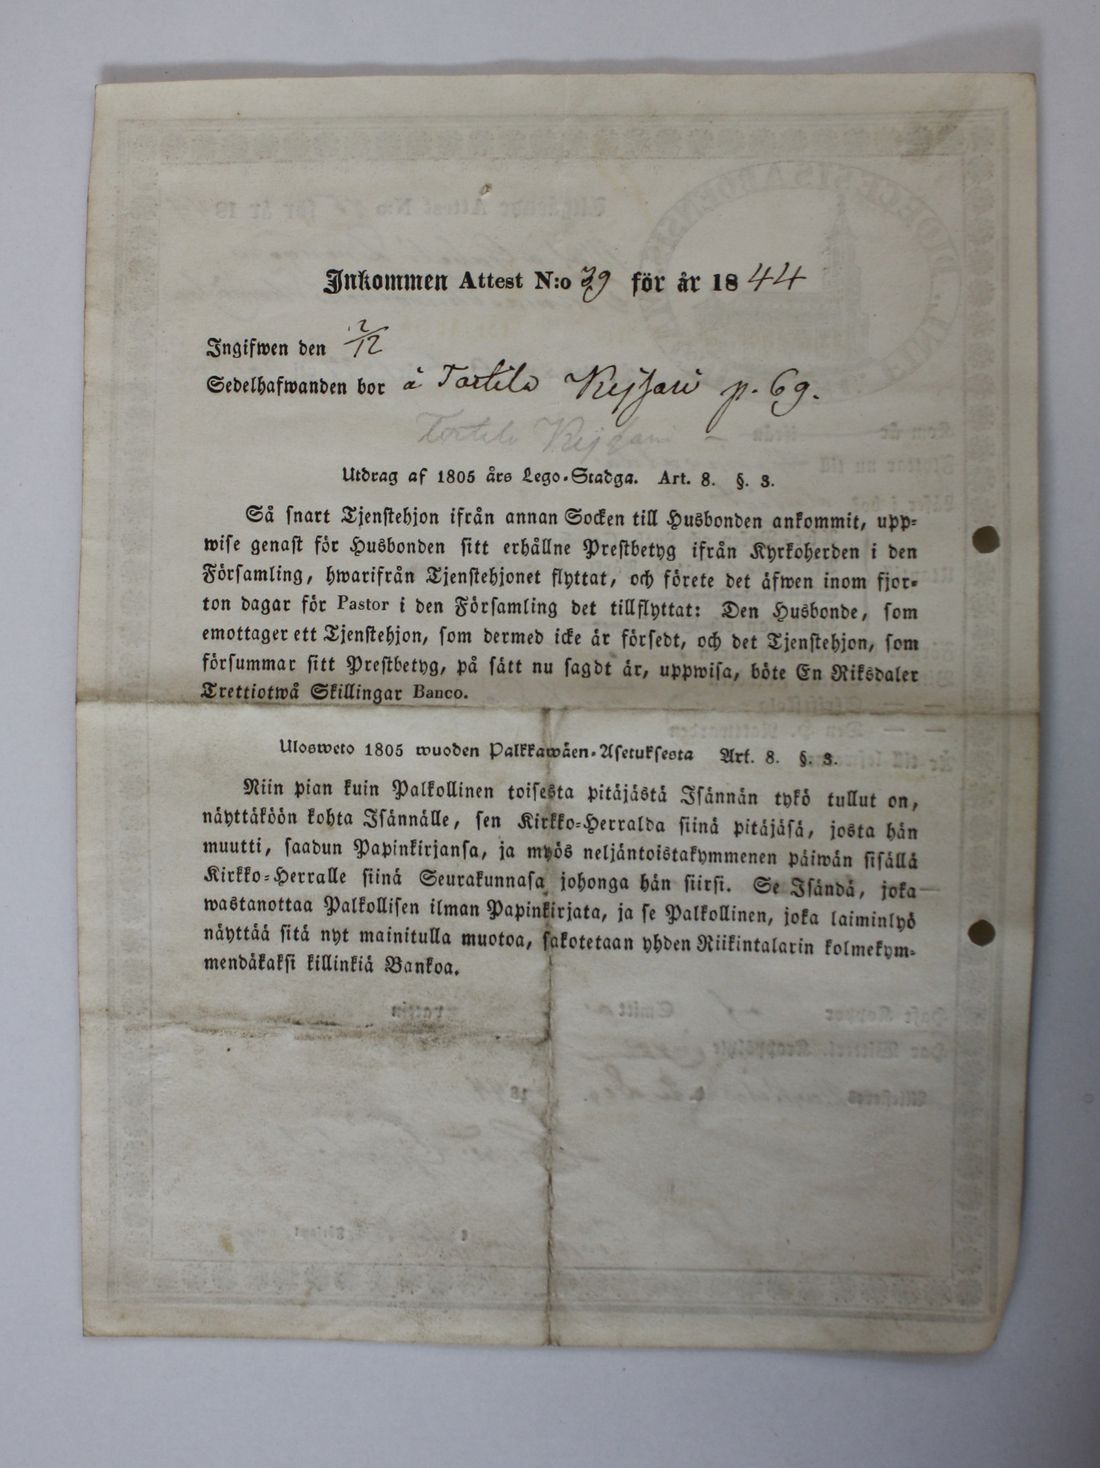 Inkommen Attest N:o 39 för år 1844
Ingifwen den 2/12
Sedelhafwanden bor å Tortila Kejsari p. 69.
Tortila Kejsari
Utdrag af 1805 års Lego-Stadga. Art. 8. §. 3.
Så snart Tjenstehjon ifrån annan Socken till Husbonden ankommit, upp-
wise genast för Husbonden sitt erhållne Prestbetyg ifrån Kyrkoherden i den
Församling, hwarifrån Tjenstehjonet flyttat, och förete det äfwen inom fjor-
ton dagar för Pastor i den Församling det tillflyttat: Den Husbonde, som
emottager ett Tjenstehjon, som dermed icke är försedt, och det Tjenstehjon, som
försummar sitt Prestbetyg, på sätt nu sagdt är, uppwisa, böte En Riksdaler
Trettiotwå Skillingar Banco.
Ulosweto 1805 wuoden Palkkawäen-Asetuksesta Art. 8. §. 3.
Niin pian kuin Palkollinen toisesta pitäjästä Isännän tykö tullut on,
näyttäköön kohta Isännälle, sen Kirkko-Herralda siinä pitäjäsä, josta hän
muutti, saadun Papinkirjansa, ja myös neljäntoistakymmenen päiwän sisällä
Kirkko-Herralle siinä Seurakunnasa johonga hän siirsi. Se Isändä, joka
wastanottaa Palkollisen ilman Papinkirjata, ja se Palkollinen, joka laiminlyö
näyttää sitä nyt mainitulla muotoa, sakotetaan yhden Riikintalarin kolmekym-
mendäkaksi killinkiä Bankoa.